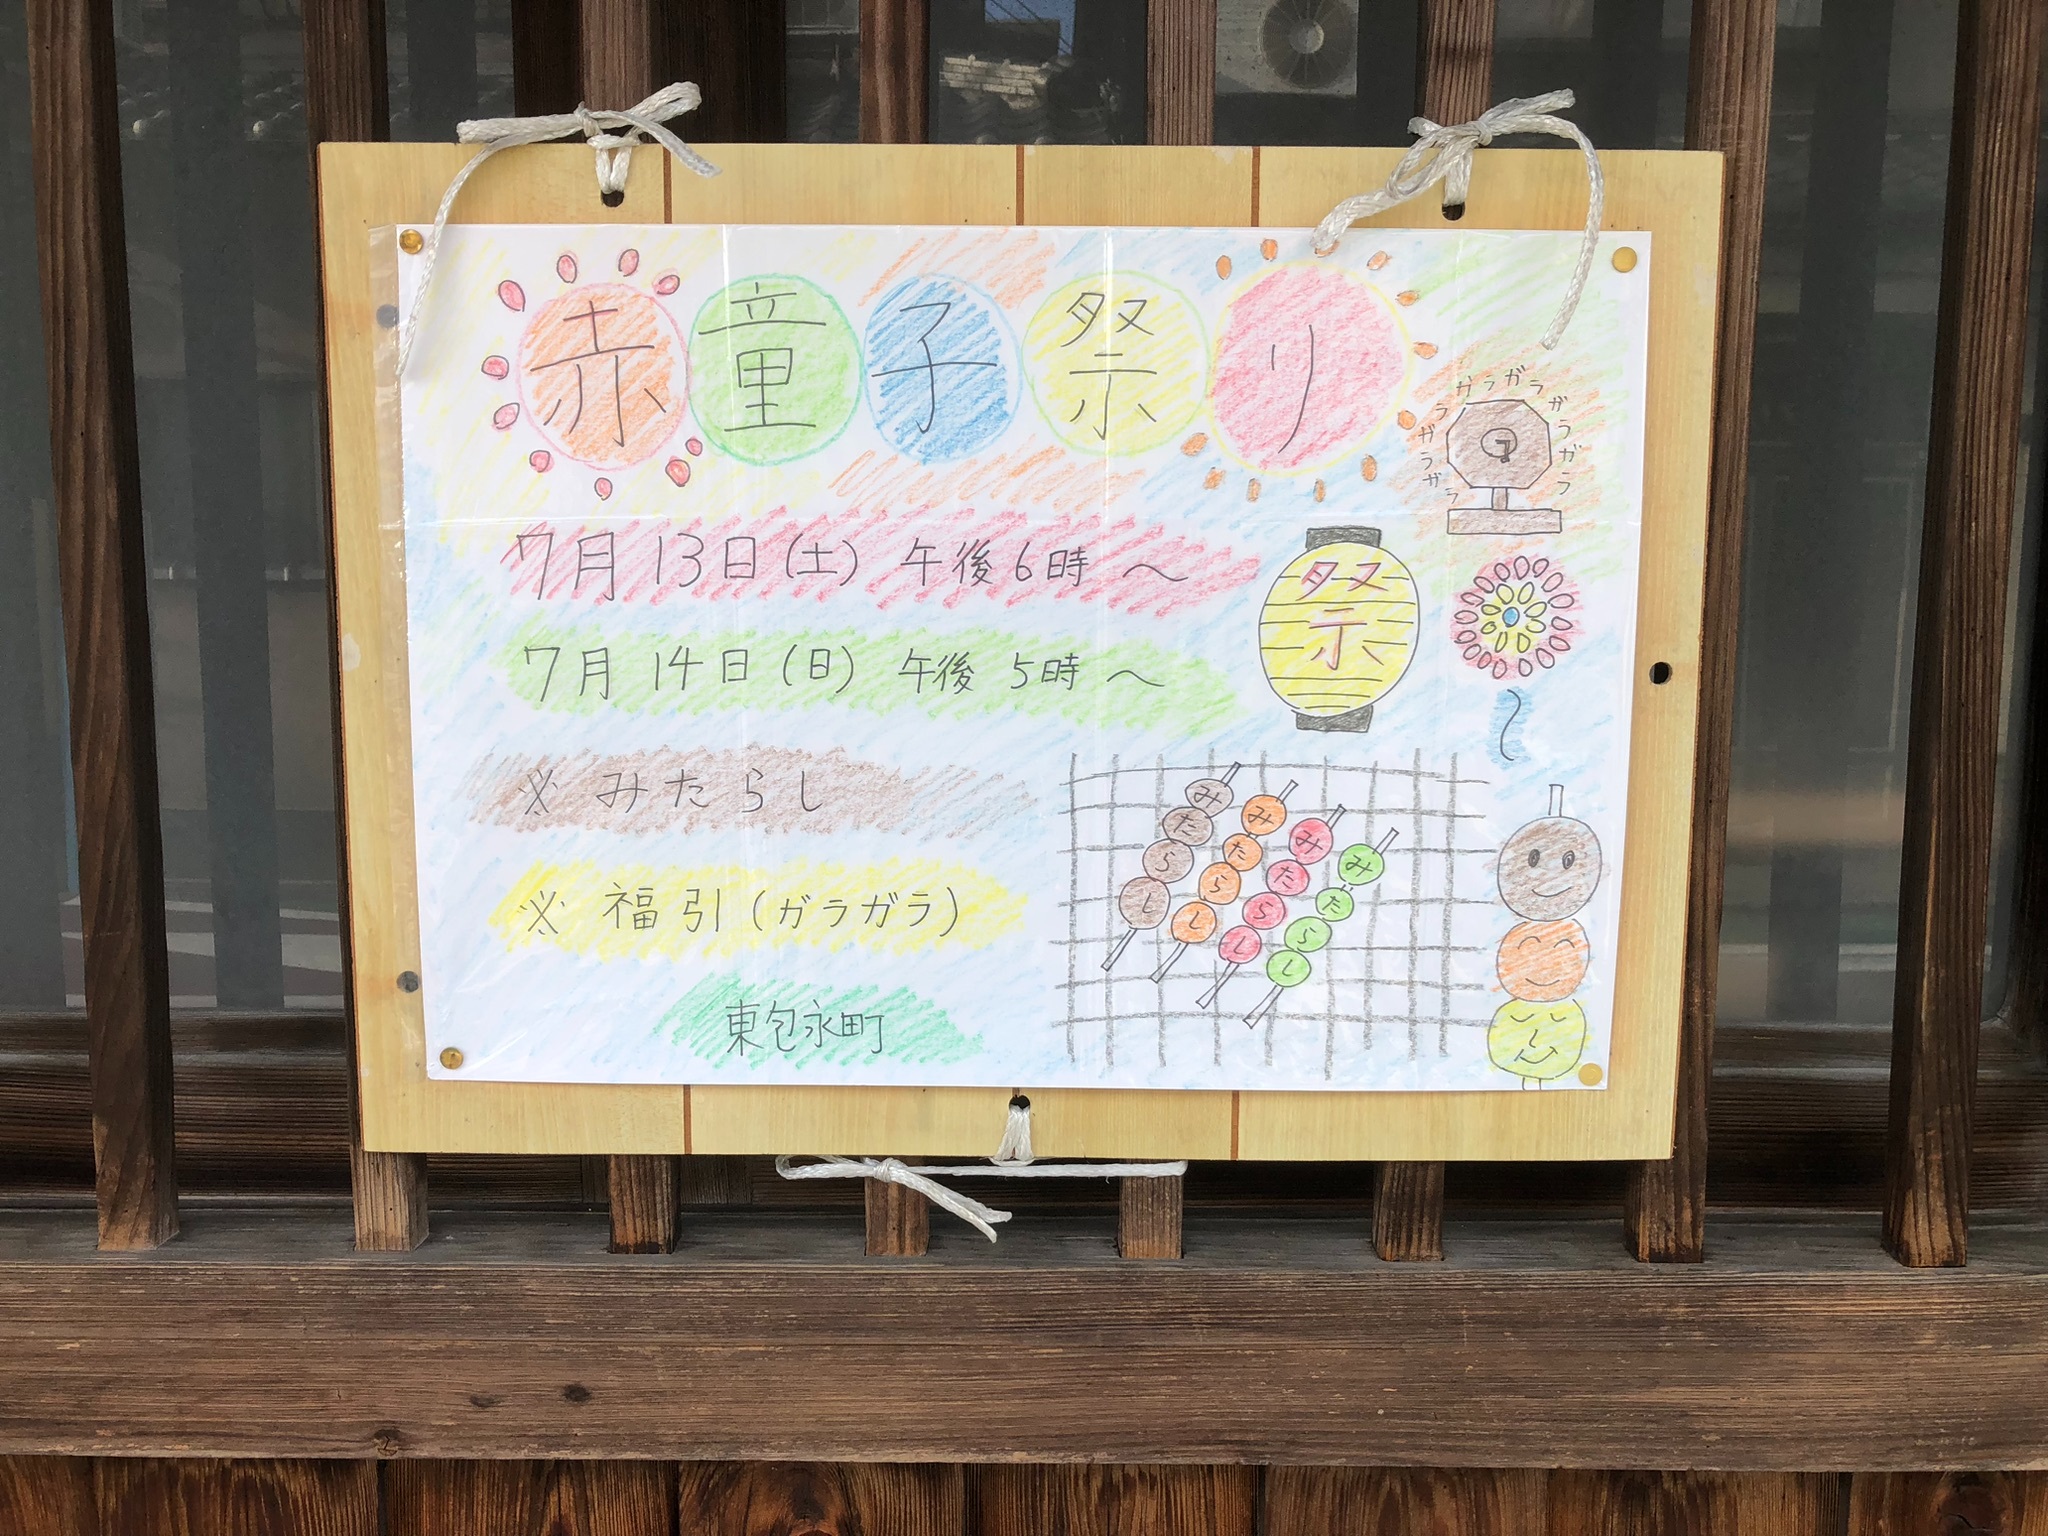 赤童子祭り
ガラガラガラガラガラガラガラ
7月13日(土) 午後6時〜
祭
7月14日(日) 午後5時〜
※みたらし
みたらし
みたらし
みたらし
みたらし
※福引(ガラガラ)
東包永町